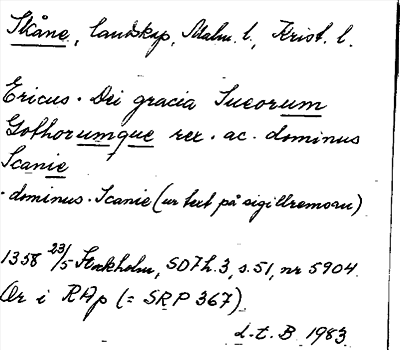 Skåne, landskap, Malm. l., Krist. l.
Ericus. Dei gracia Sueorum
Gothorumque rex. ac. dominus
Scanie
. dominus. Scanie (ur text på sigillremsan)
1358 23/5 Stockholm, SD7h.3, s.51, nr 5904.
Or i RAp (= SRP 367).
d. t. B 1983